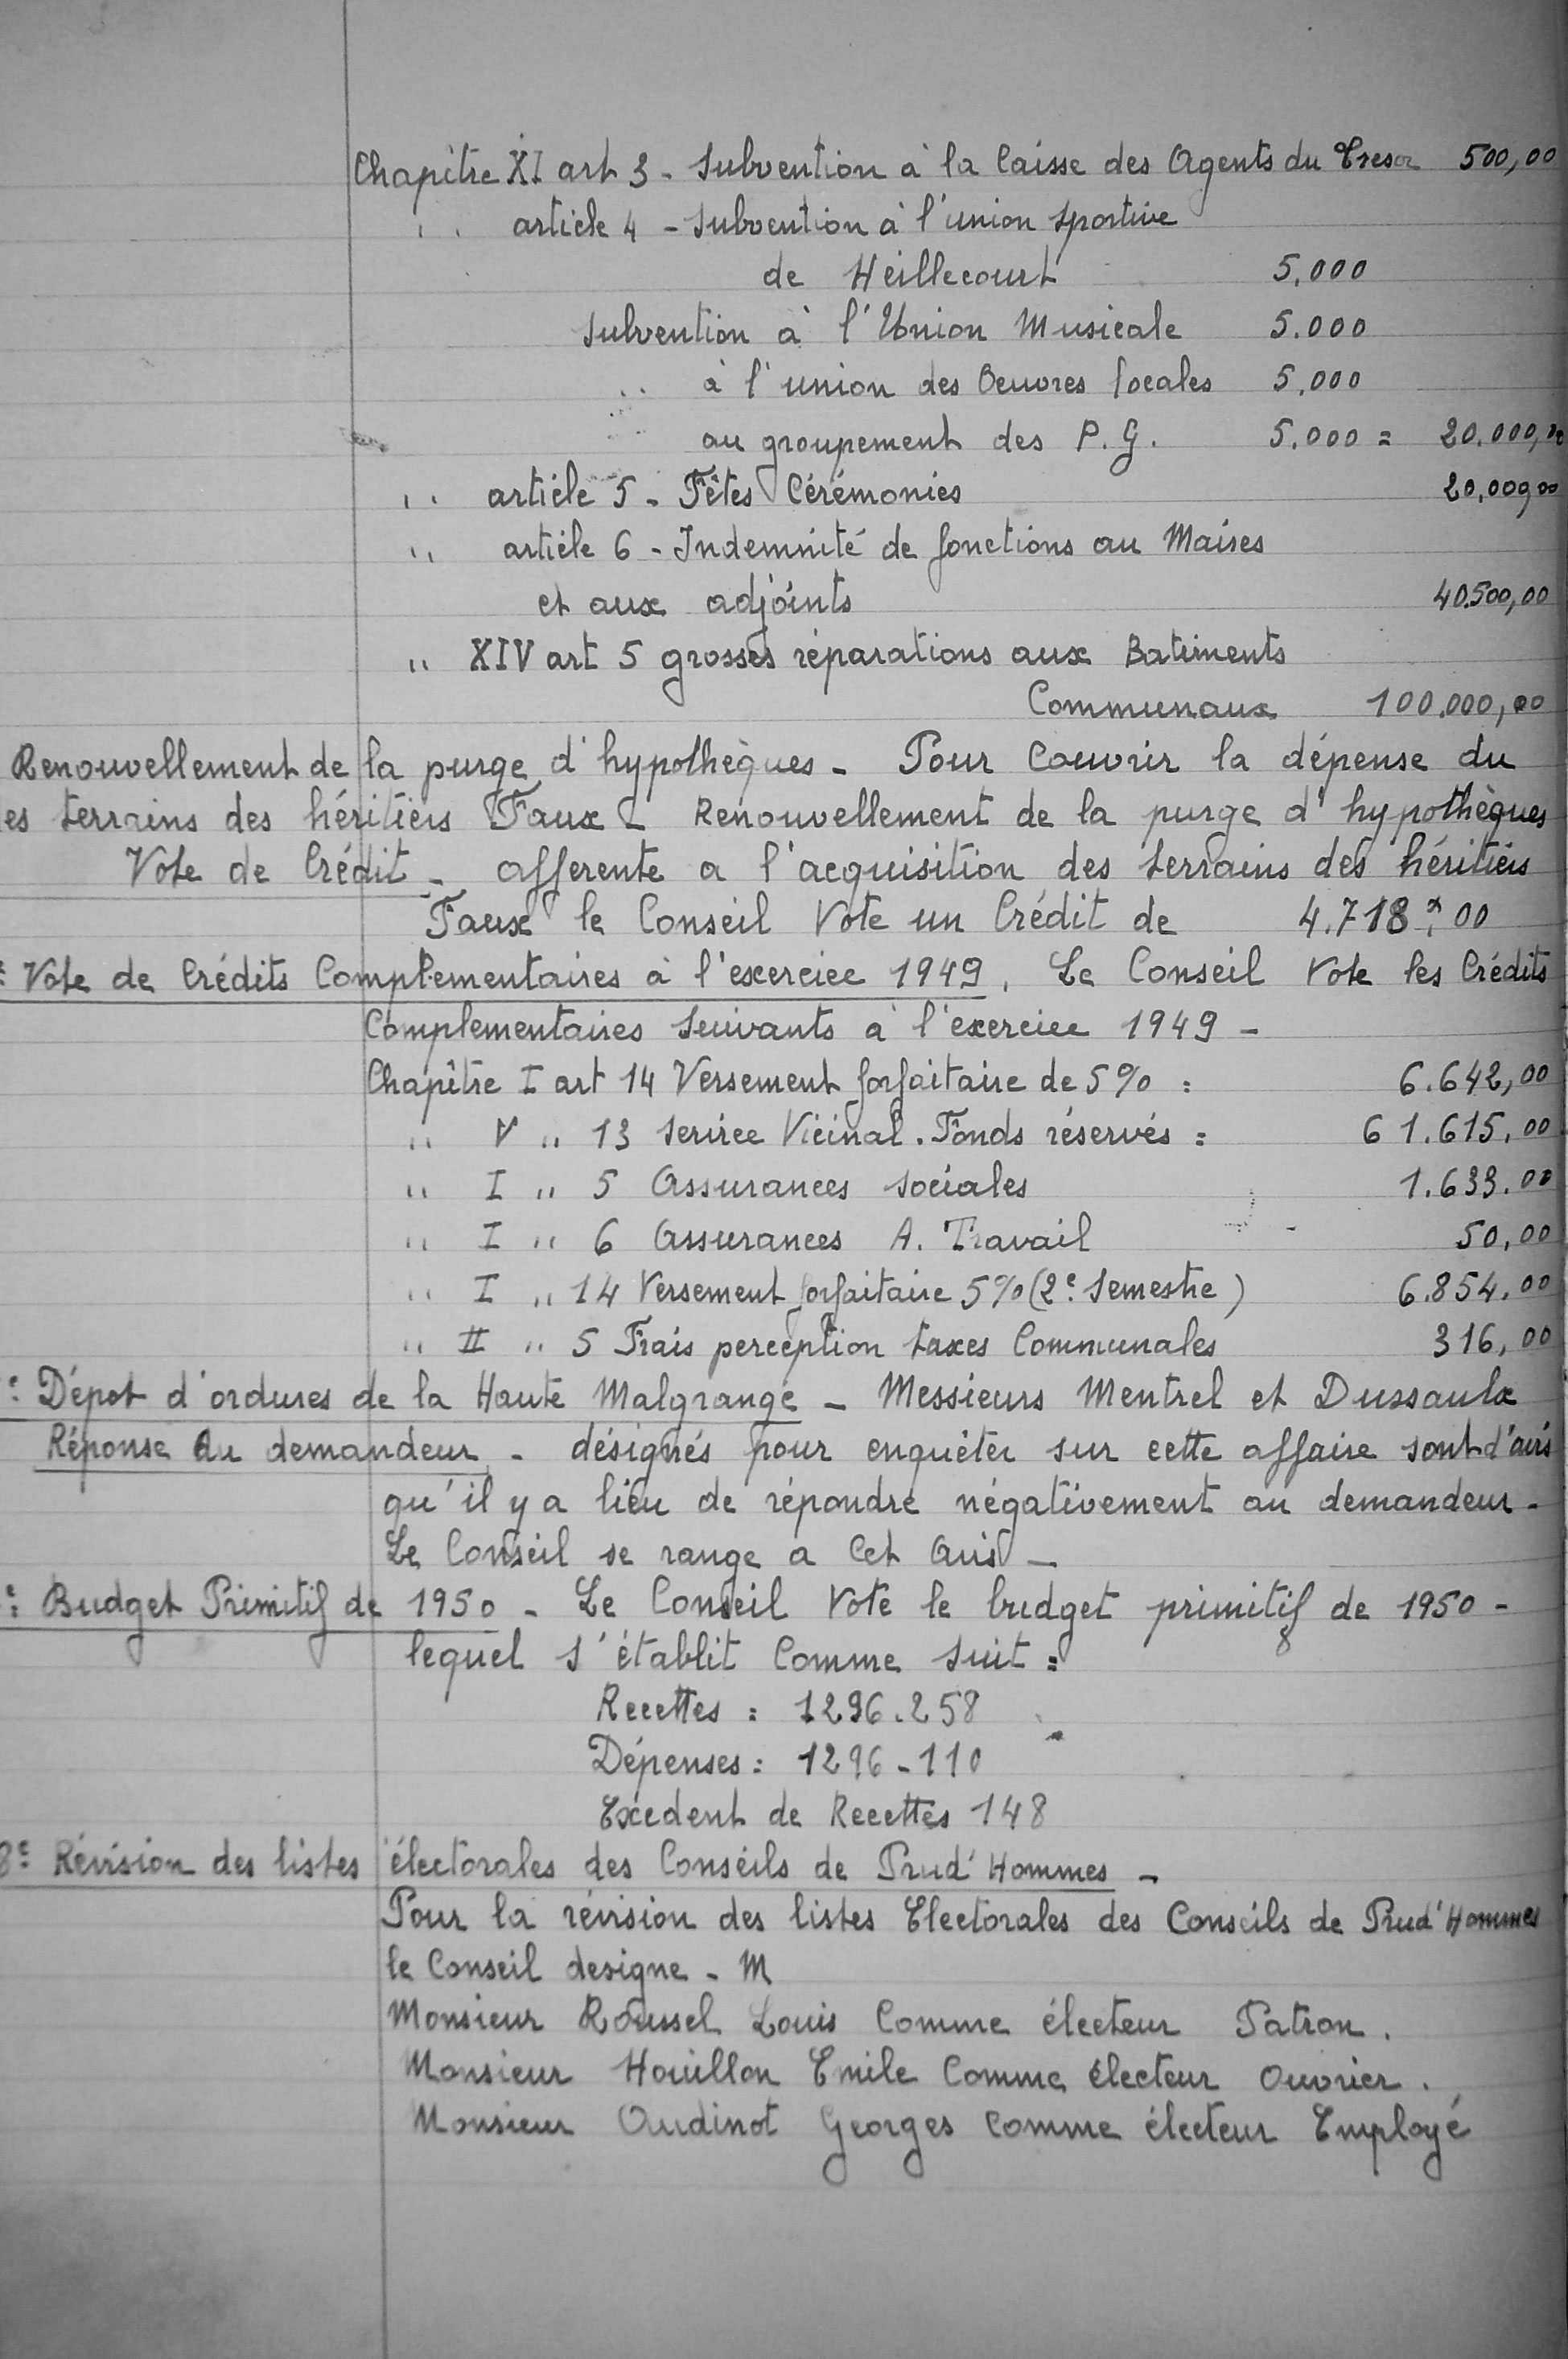 Chapitre XI art 3 - Subvention à la Caisse des Agents du Tresor 500,00
" article 4 - Subvention à l'union sportive
de Heillecourt 5.000
Subvention à l'Union Musicale 5.000
" à l'union des Oeuvres locales 5.000
au groupement des P.G. 5.000 = 20.000,00
" article 5 - Fêtes Cérémonies 20.000,00
" article 6 - Indemnité de fonctions au Maires
et aux adjoints 40.500,00
" XIV art 5 grosses réparations aux Batiments
Communaux 100.000,00
Renouvellement de la purge d'hypothèques - Pour Couvrir la dépense du
es terrains des héritiers Faux - Renouvellement de la purge d'hypothèques
Vote de Crédit - afferente a l'acquisition des terrains des héritiers
Faux le Conseil Vote un Crédit de 4.718,00
: Vote de Crédits Complementaires à l'exercice 1949. Le Conseil Vote les Crédits
Complementaires Suivants à l'exercice 1949 -
Chapître I art 14 Versement forfaitaire de 5% : 6.642,00
" V " 13 Service Vicinal. Fonds réservés : 61.615,00
" I " 5 Assurances sociales 1.633.00
" I " 6 Assurances A. Travail 50,00
" I " 14 Versement forfaitaire 5% (2e semestre) 6.854.00
" II " 5 Frais perception taxes Communales 316,00
e: Dépot d'ordures de la Haute Malgrange - Messieurs Mentrel et Dussaulx
Réponse au demandeur - désignés pour enquêter sur cette affaire sont d'avis
qu'il y a lieu de répondre négativement au demandeur -
Le Conseil se range a Cet Avis -
e: Budget Primitif de 1950 - Le Conseil Vote le budget primitif de 1950 -
lequel s'établit Comme suit :
Recettes : 1296.258
Dépenses : 1296-110
Exedent de Recettes 148
8e: Révision des listes électorales des Conseils de Prud'Hommes -
Pour la révision des listes Electorales des Conseils de Prud'Hommes
le Conseil designe - M
Monsieur Roussel Louis Comme électeur Patron.
Monsieur Houillon Emile Comme électeur Ouvrier.
Monsieur Oudinot Georges Comme électeur Employé